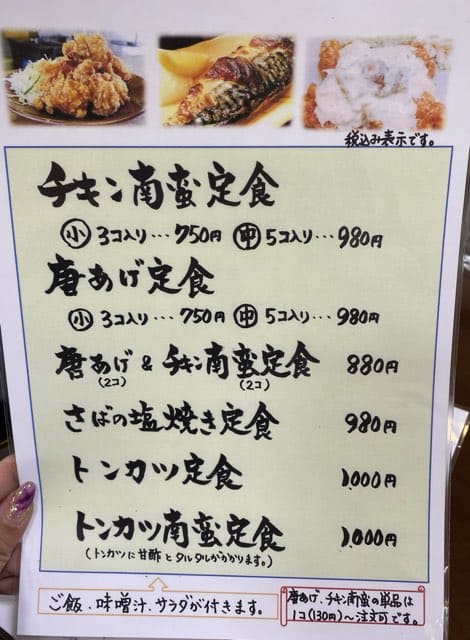 税込み表示です。
チキン南蛮定食
小 3コ入り…750円 中 5コ入り…980円
唐あげ定食
小 3コ入り…750円 中 5コ入り…980円
唐あげ & チキン南蛮定食 880円
(2コ) (2コ)
さばの塩焼き定食 980円
トンカツ定食 1,000円
トンカツ南蛮定食 1,000円
(トンカツに甘酢とタルタルがかかります。)
ご飯、味噌汁、サラダが付きます。
唐あげ、チキン南蛮の単品は
1コ(130円)～注文可です。